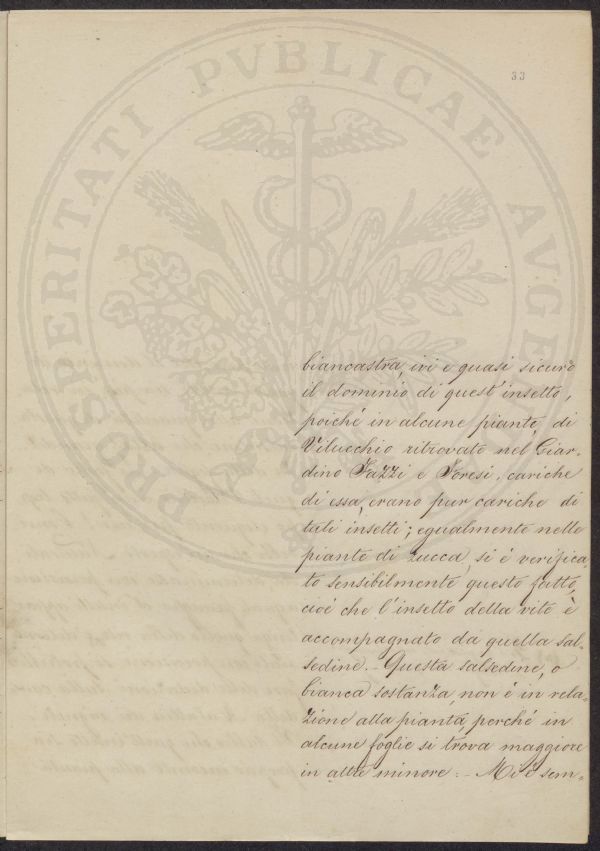 33
PROSPERITATI PVBLICAE AVGEN
biancastra, ivi e quasi sicuro
il dominio di quest'insetto,
poiché in alcune piante, di
Vilucchio ritrovato nel Giar-
dino Fazzi e Foresi, cariche
di essa, erano pur cariche di
tali insetti; egualmente nelle
piante di zucca, si é verifica-
to sensibilmente questo fatto,
cioé che l'insetto della vite é
accompagnato da quella sal-
sedine. - Questa salsedine, o
bianca sostanza, non é in rela-
zione alla pianta, perché in
alcune foglie si trova maggiore
in altre minore. - Mi é sem-